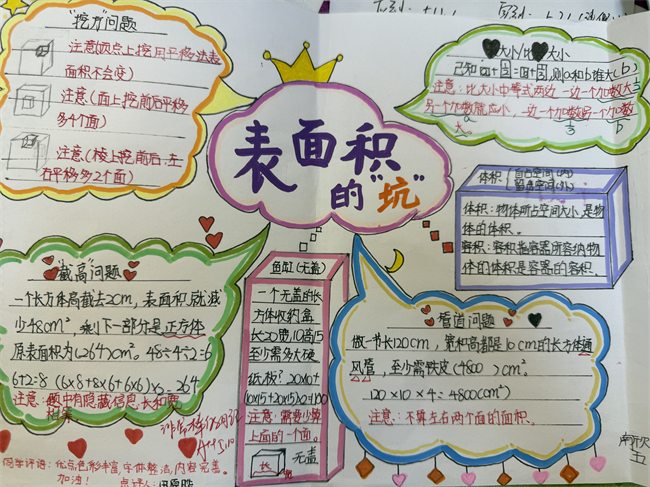 "挖方"问题
注意(顶点上挖用平移法表
面积不会变)
注意(面上挖前后平移
多4个面)
注意(棱上挖,前后,左
右平移多2个面)
表面积
的"坑"
大小/比大小
则a和b谁大(b)
注意:比大小中等式两边一边一个加数大
另一个加数就应小,一边一个加数另一个加数
大。
体积
体积:物体所占空间大小是物
体的体积。
容积:容积指容器所容纳物
体的体积是容器的容积。
"截高"问题
一个长方体高截去2cm,表面积就减
少48cm²,剩下一部分是正方体
原表面积为(264)cm². 48÷4÷2=6
6+2=8 (6x8+8x6+6x6)x2=264
注意:题中有隐藏信息,长和宽
相等
鱼缸(无盖)
一个无盖的长
方体收纳盒
长20宽10高15
至少需多大硬
纸板?20x10+
注意:需要少算
上面的一个面。
长
无盖
管道问题
做一节长120cm,宽和高都是10cm的长方体通
风管,至少需铁皮(4800)cm²。
120×10×4=4800(cm²)
注意:不算左右两个面的面积。
同学评语:优点色彩丰富,字体整洁,内容完善。
加油!
点评人: